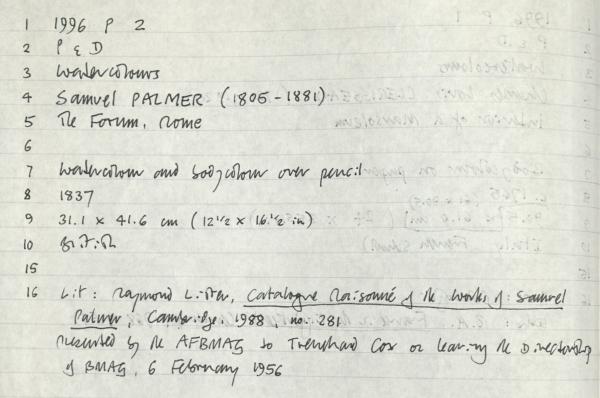 1 1996 P 2
2 P & D
3 Watercolours
4 Samuel PALMER (1805-1881)
5 The Forum, Rome
6
7 Watercolour and bodycolour over pencil
8 1837
9 31.1 x 41.6 cm (12 1/2 x 16 1/2 in)
10 British
15
16 Lit: Raymond Lister, Catalogue Raisonné of the Works of Samuel
Palmer, Cambridge 1988, no. 281
Presented by the AFBMAG to Trenchard Cox on leaving the Directorship
of BMAG, 6 February 1956